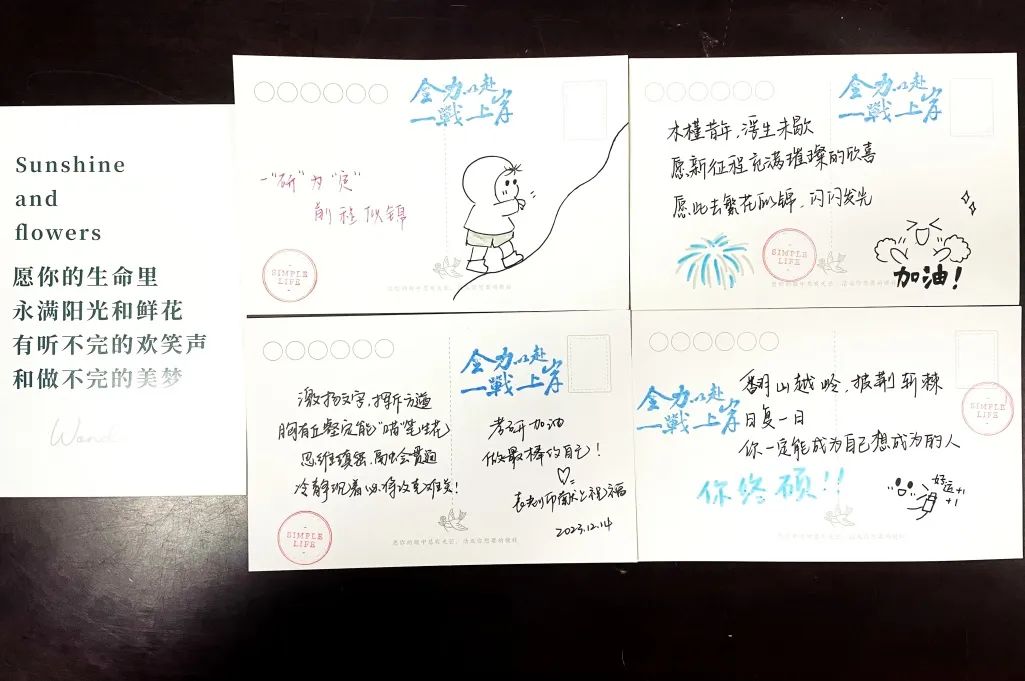 Sunshine
and
flowers
愿你的生命里
永满阳光和鲜花
有听不完的欢笑声
和做不完的美梦
全力以赴
一戰上岸
一"研"为"定"
前程似锦
SIMPLE
LIFE
全力以赴
一戰上岸
木槿昔年,浮生未歇
愿新征程充满璀璨的欣喜
愿此去繁花似锦,闪闪发光
SIMPLE
LIFE
加油!
全力以赴
一戰上岸
激扬文字,挥斥方遒
胸有丘壑定能"喵"笔生花
思维缜密,融会贯通
冷静沉着必将攻克难关!
考研加油
做最棒的自己!
袁老师献上祝福
2023.12.14
SIMPLE
LIFE
全力以赴
一戰上岸
翻山越岭,披荆斩棘
日复一日
你一定能成为自己想成为的人
你终硕!!
好运+1
+1
SIMPLE
LIFE